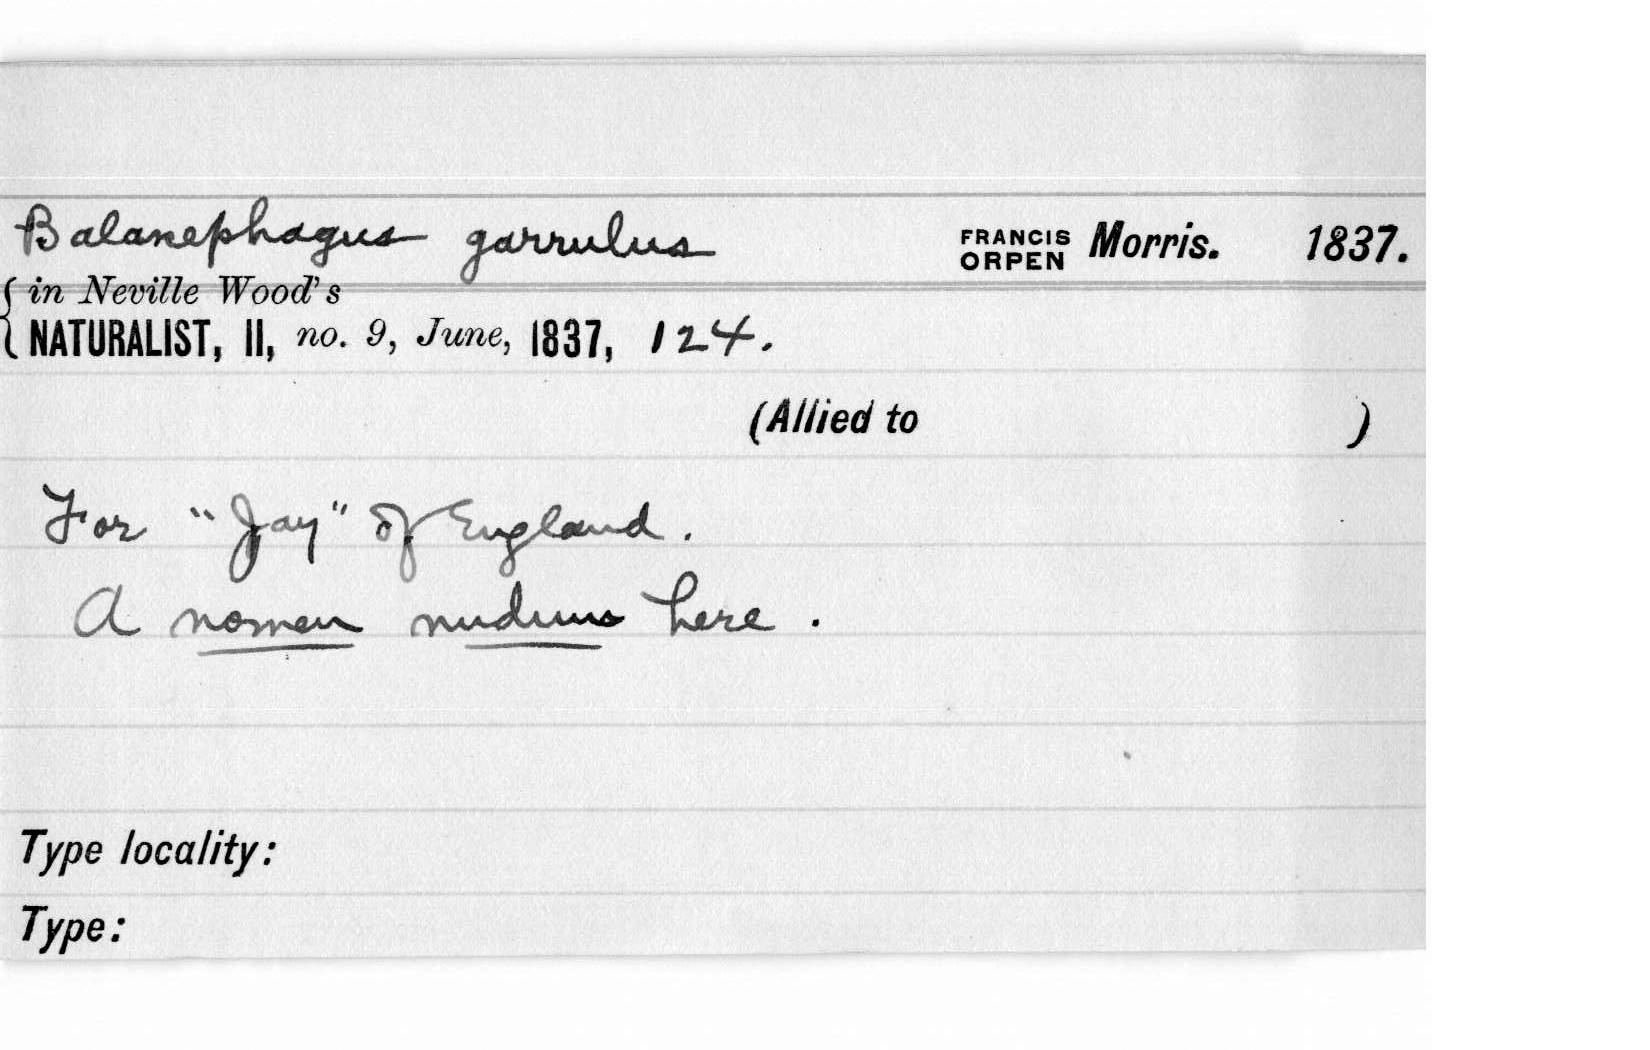 Balanephagus garrulus FRANCIS ORPEN Morris. 1837.
in Neville Wood's
NATURALIST, II, no. 9, June, 1837, 124.
(Allied to )
For "Jay" of England.
A nomen nudum here.
Type locality:
Type: